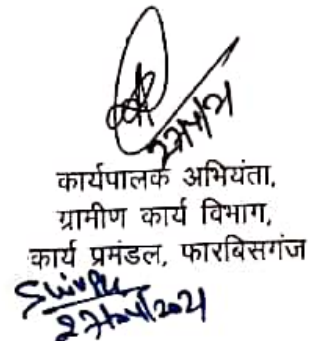 27/4/21
कार्यपालक अभियंता,
ग्रामीण कार्य विभाग,
कार्य प्रमंडल, फारबिसगंज
27/04/2021